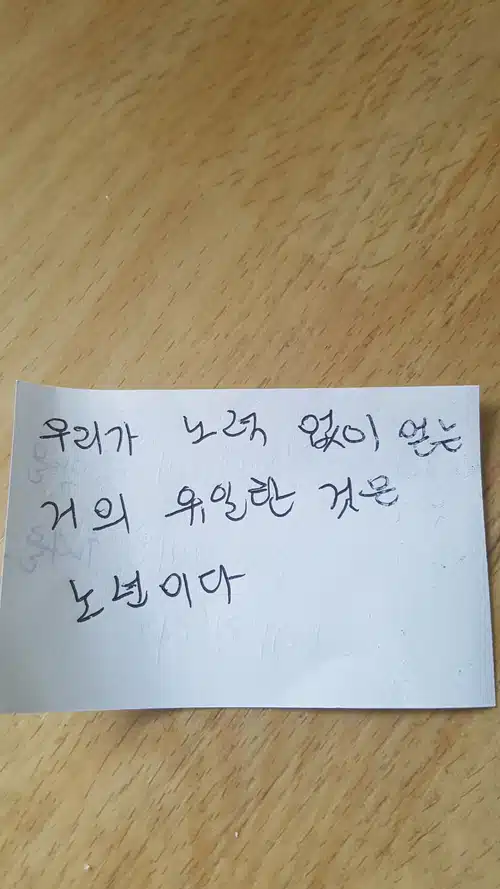 우리가 노력 없이 얻는
거의 유일한 것은
노년이다